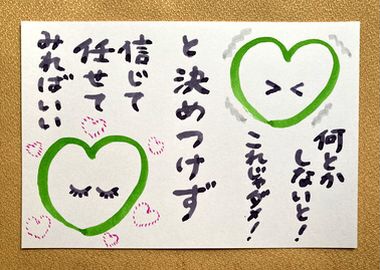 何とか
しないと!
これじゃダメ!
と決めつけず
信じて
任せて
みればいい